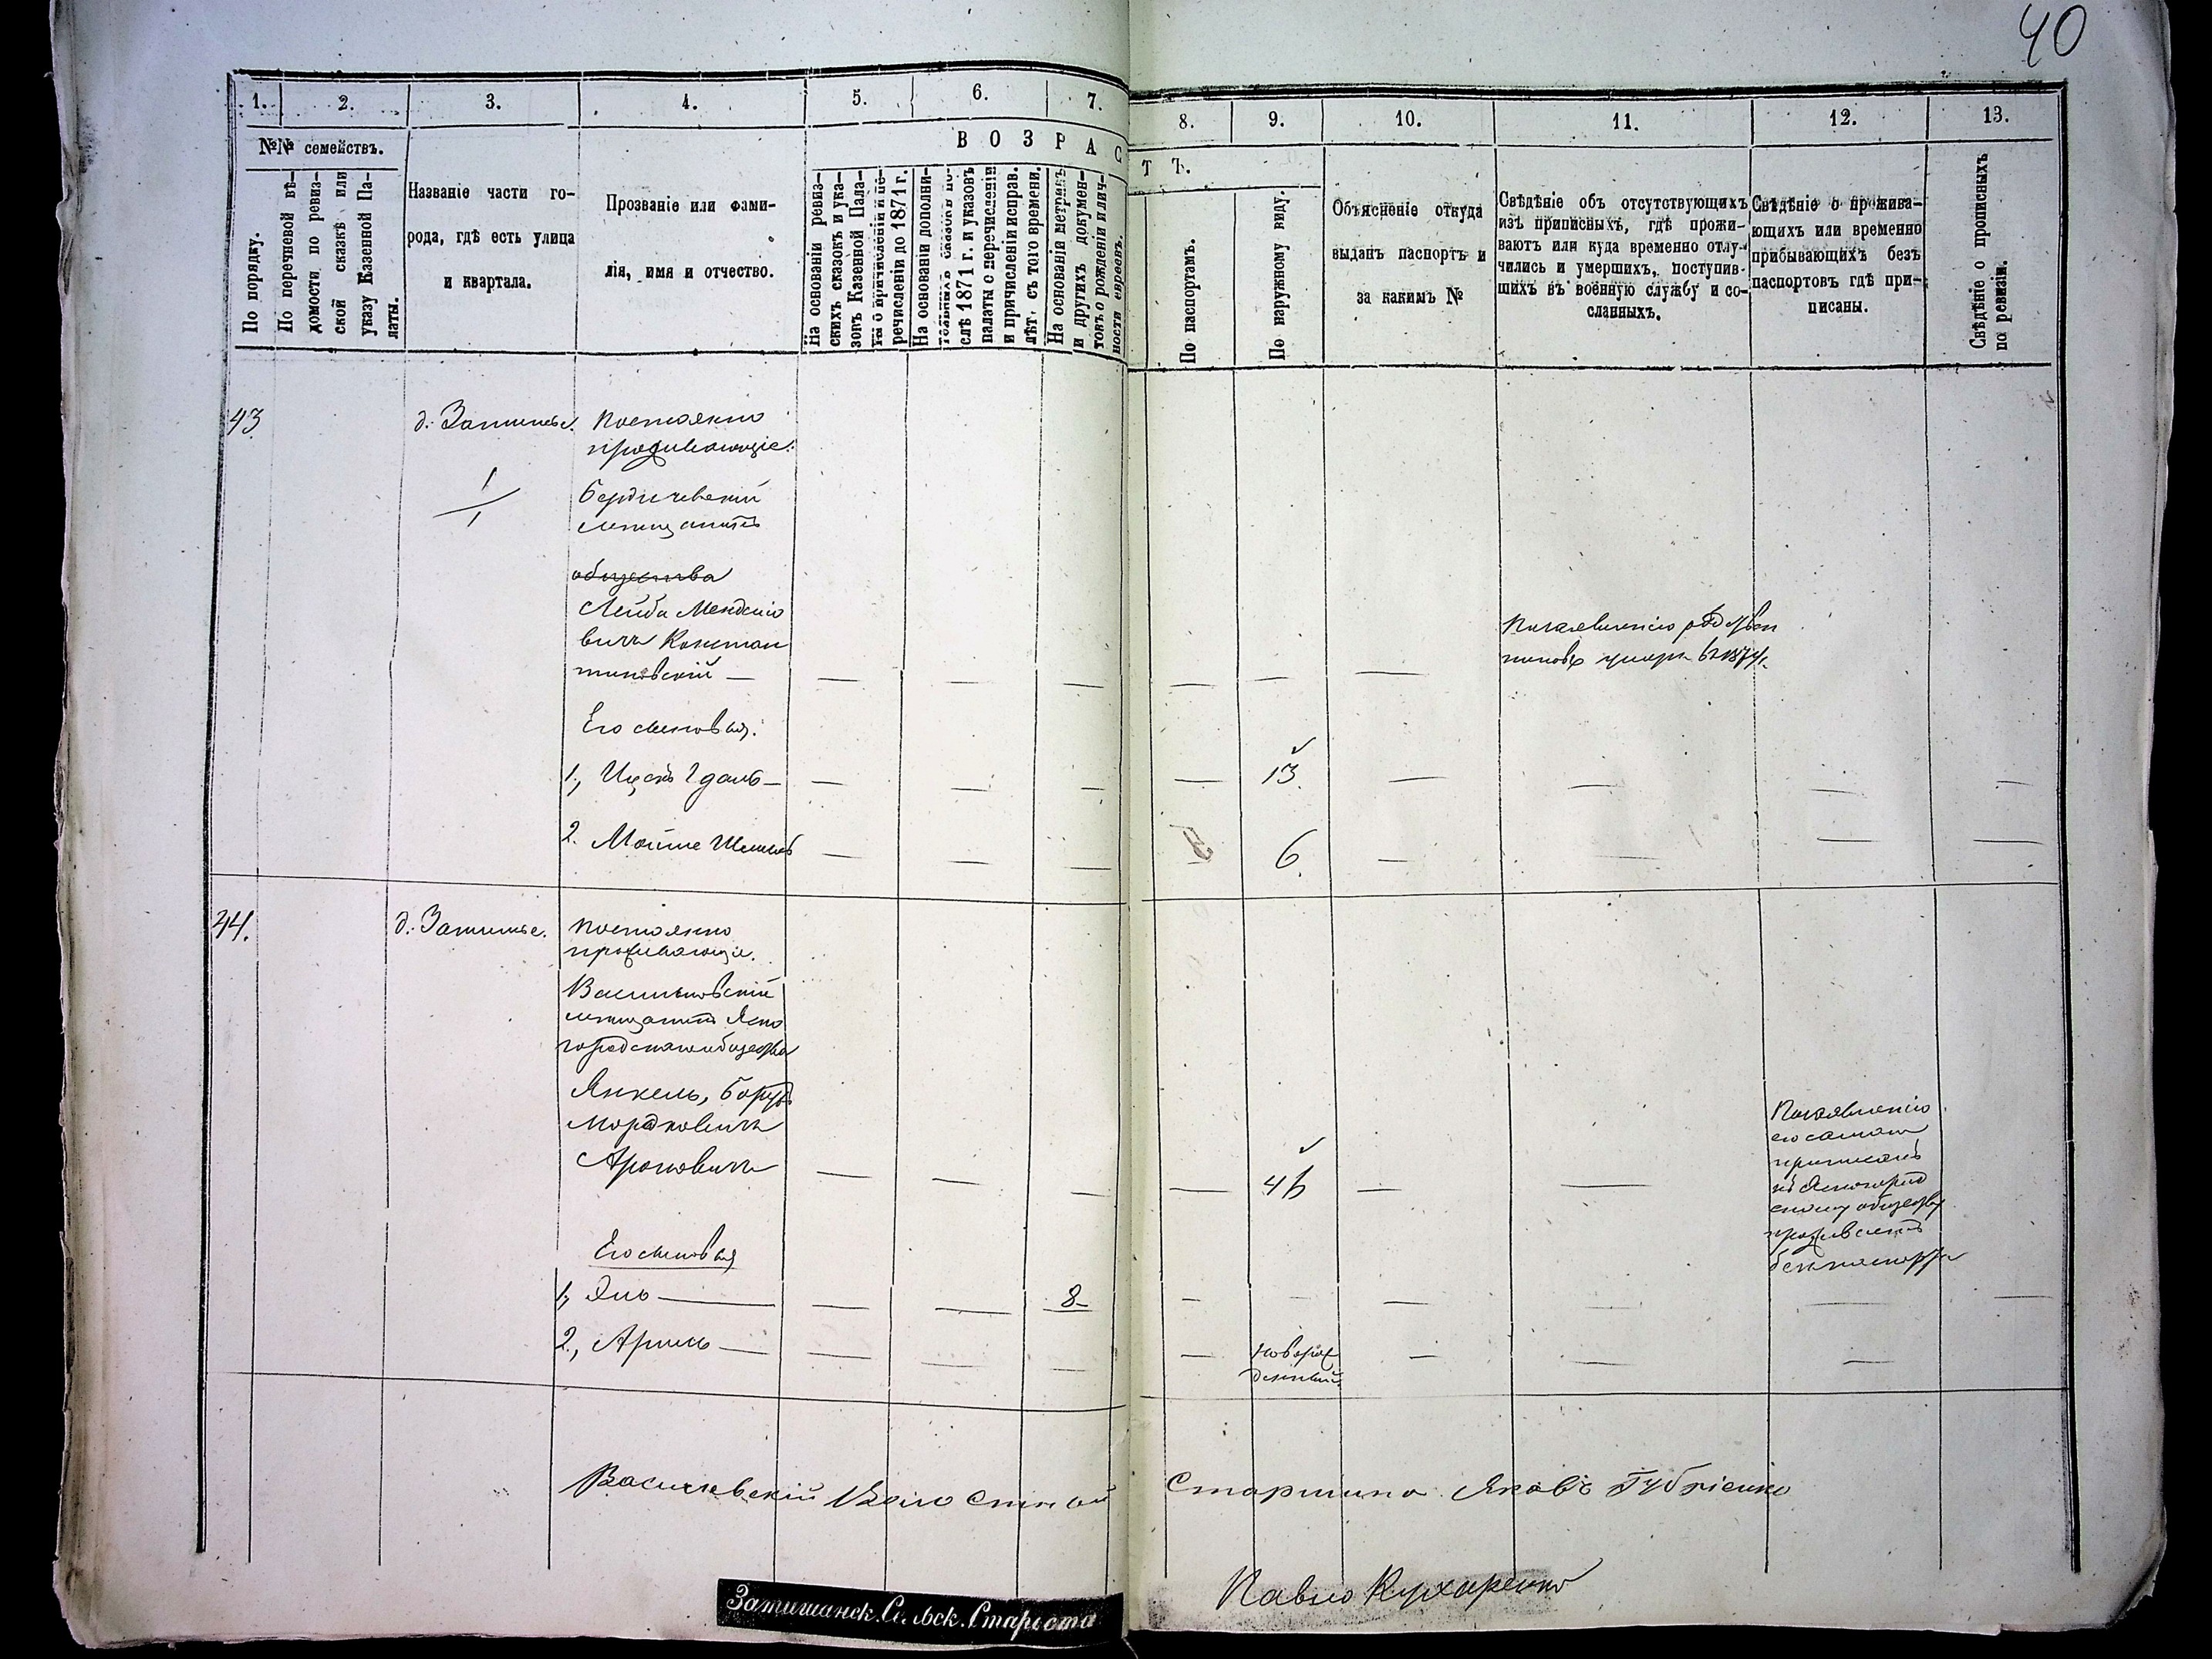 40
1. 2. 3. 4. 5. 6. 7. 8. 9. 10. 11. 12. 13.
№№ семействъ.
ВОЗРАСТЪ.
По порядку.
По перечневой вѣ-
домости, по ревиз-
ской сказкѣ или
указу Казенной Па-
латы.
Названіе части го-
рода, гдѣ есть улица
и квартала.
Прозваніе или фами-
лія, имя и отчество.
На основаніи ревиз-
скихъ сказокъ и ука-
зовъ Казенной Пала-
ты о причисленіи и пе-
речисленіи до 1871 г.
На основаніи дополни-
тельныхъ сказокъ по-
слѣ 1871 г. и указовъ
палаты с перечисленіи
и причисленіи исправ.
лѣт. съ того времени.
На основаніи метрикъ
и другихъ докумен-
товъ о рожденіи и лич-
ности евреевъ.
По паспортамъ.
По наружному виду.
Объясненіе откуда
выданъ паспортъ и
за какимъ №
Свѣдѣніе объ отсутствующихъ
изъ приписныхъ, гдѣ прожи-
ваютъ или куда временно отлу-
чились и умершихъ, поступив-
шихъ въ военную службу и со-
сланныхъ.
Свѣдѣніе о прожива-
ющихъ или временно
прибывающихъ безъ
паспортовъ гдѣ при-
писаны.
Свѣдѣніе о прописныхъ
по ревизіи.
43
д. Затишье.
1/1
Постоянно
проживающіе:
Бердичевскій
мѣщанинъ
общества
Лейба Менделіо
вичъ Констан
тиновскій —
По заявленію родствен
никовъ умеръ въ 1874 г.
Его сыновья:
1, Ицекъ Гдаль — 13.
2. Мойше Шмиль 6.
44.
д. Затишье.
Постоянно
проживающіе.
Васильковскій
мѣщанинъ Ясно
городскаго общества
Янкель, Борухъ
Мордковичъ
Ароновичъ
45
По заявленію
его самаго
приписанъ
къ Ясногород
скому обществу
проживаетъ
безъ паспорта
Его сыновья
1, Эль — 8
2, Арипь —
Новорож
денный.
Васильевскій Волостной Старшина Яковъ Губріенко
Затишанск. Сельск. Староста
Павло Кухаренко